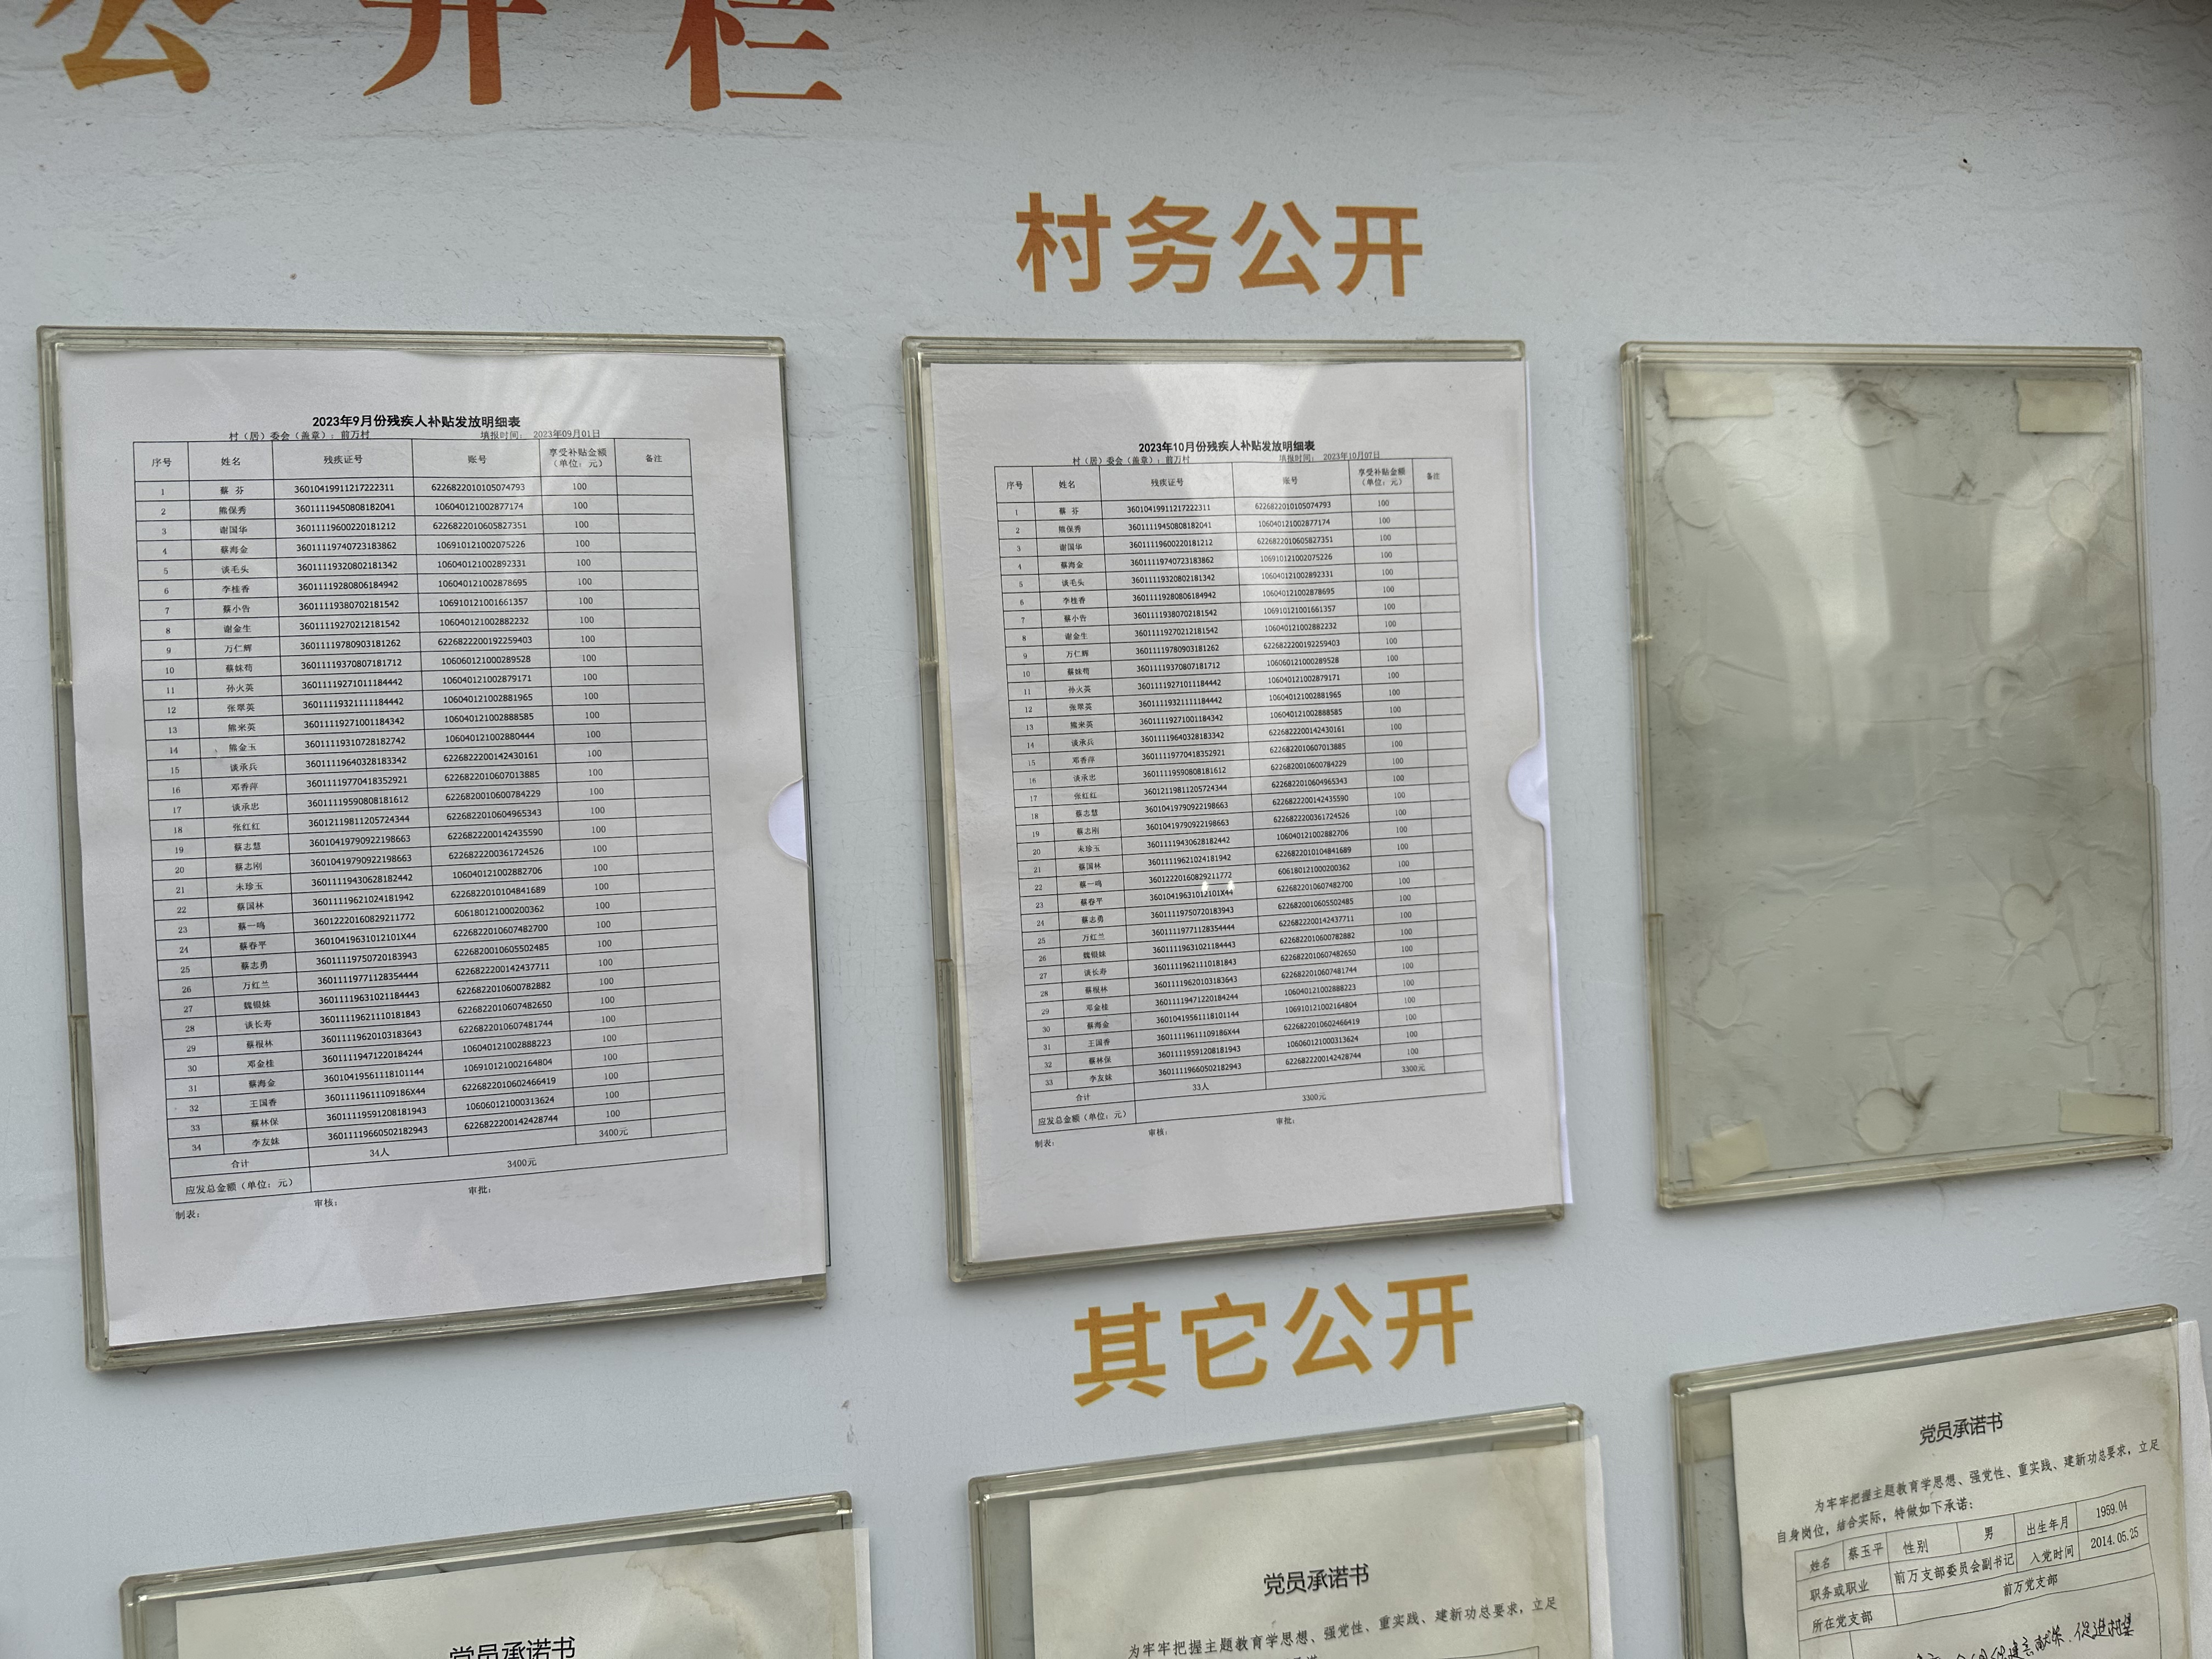 公开栏
村务公开
2023年9月份残疾人补贴发放明细表
村（居）委会（盖章）：前万村 填报时间： 2023年09月01日
序号 姓名 残疾证号 账号 享受补贴金额（单位：元） 备注
1 蔡 芬 36010419911217222311 6226822010105074793 100
2 熊保秀 36011119450808182041 106040121002877174 100
3 谢国华 36011119600220181212 6226822010605827351 100
4 蔡海金 36011119740723183862 106910121002075226 100
5 谈毛头 36011119320802181342 106040121002892331 100
6 李桂香 36011119280806184942 106040121002878695 100
7 蔡小告 36011119380702181542 106910121001661357 100
8 谢金生 36011119270212181542 106040121002882232 100
9 万仁辉 36011119780903181262 6226822200192259403 100
10 蔡妹苟 36011119370807181712 106060121000289528 100
11 孙火英 36011119271011184442 106040121002879171 100
12 张翠英 36011119321111184442 106040121002881965 100
13 熊米英 36011119271001184342 106040121002888585 100
14 熊金玉 36011119310728182742 106040121002880444 100
15 谈承兵 36011119640328183342 6226822200142430161 100
16 邓香萍 36011119770418352921 6226822010607013885 100
17 谈承忠 36011119590808181612 6226820010600784229 100
18 张红红 36012119811205724344 6226822010604965343 100
19 蔡志慧 36010419790922198663 6226822200142435590 100
20 蔡志刚 36010419790922198663 6226822200361724526 100
21 未珍玉 36011119430628182442 106040121002882706 100
22 蔡国林 36011119621024181942 6226822010104841689 100
23 蔡一鸣 36012220160829211772 606180121000200362 100
24 蔡春平 36010419631012101X44 6226822010607482700 100
25 蔡志勇 36011119750720183943 6226820010605502485 100
26 万红兰 36011119771128354444 6226822200142437711 100
27 魏银妹 36011119631021184443 6226822010600782882 100
28 谈长寿 36011119621110181843 6226822010607482650 100
29 蔡根林 36011119620103183643 6226822010607481744 100
30 邓金桂 36011119471220184244 106040121002888223 100
31 蔡海金 36010419561118101144 106910121002164804 100
32 王国香 36011119611109186X44 6226822010602466419 100
33 蔡林保 36011119591208181943 106060121000313624 100
34 李友妹 36011119660502182943 6226822200142428744 100
合计 34人 3400元
应发总金额（单位：元） 3400元
制表： 审核： 审批：
2023年10月份残疾人补贴发放明细表
村（居）委会（盖章）：前万村 填报时间： 2023年10月07日
序号 姓名 残疾证号 账号 享受补贴金额（单位：元） 备注
1 蔡 芬 36010419911217222311 6226822010105074793 100
2 熊保秀 36011119450808182041 106040121002877174 100
3 谢国华 36011119600220181212 6226822010605827351 100
4 蔡海金 36011119740723183862 106910121002075226 100
5 谈毛头 36011119320802181342 106040121002892331 100
6 李桂香 36011119280806184942 106040121002878695 100
7 蔡小告 36011119380702181542 106910121001661357 100
8 谢金生 36011119270212181542 106040121002882232 100
9 万仁辉 36011119780903181262 6226822200192259403 100
10 蔡妹苟 36011119370807181712 106060121000289528 100
11 孙火英 36011119271011184442 106040121002879171 100
12 张翠英 36011119321111184442 106040121002881965 100
13 熊米英 36011119271001184342 106040121002888585 100
14 谈承兵 36011119640328183342 6226822200142430161 100
15 邓香萍 36011119770418352921 6226822010607013885 100
16 谈承忠 36011119590808181612 6226820010600784229 100
17 张红红 36012119811205724344 6226822010604965343 100
18 蔡志慧 36010419790922198663 6226822200142435590 100
19 蔡志刚 36010419790922198663 6226822200361724526 100
20 未珍玉 36011119430628182442 106040121002882706 100
21 蔡国林 36011119621024181942 6226822010104841689 100
22 蔡一鸣 36012220160829211772 606180121000200362 100
23 蔡春平 36010419631012101X44 6226822010607482700 100
24 蔡志勇 36011119750720183943 6226820010605502485 100
25 万红兰 36011119771128354444 6226822200142437711 100
26 魏银妹 36011119631021184443 6226822010600782882 100
27 谈长寿 36011119621110181843 6226822010607482650 100
28 蔡根林 36011119620103183643 6226822010607481744 100
29 邓金桂 36011119471220184244 106040121002888223 100
30 蔡海金 36010419561118101144 106910121002164804 100
31 王国香 36011119611109186X44 6226822010602466419 100
32 蔡林保 36011119591208181943 106060121000313624 100
33 李友妹 36011119660502182943 6226822200142428744 100
合计 33人 3300元
应发总金额（单位：元） 3300元
制表： 审核： 审批：
其它公开
党员承诺书
党员承诺书
为牢牢把握主题教育学思想、强党性、重实践、建新功总要求，立足
党员承诺书
为牢牢把握主题教育学思想、强党性、重实践、建新功总要求，立足
自身岗位，结合实际，特做如下承诺：
姓名 蔡玉平 性别 男 出生年月 1959.04
职务或职业 前万支部委员会副书记 入党时间 2014.05.25
所在党支部 前万党支部